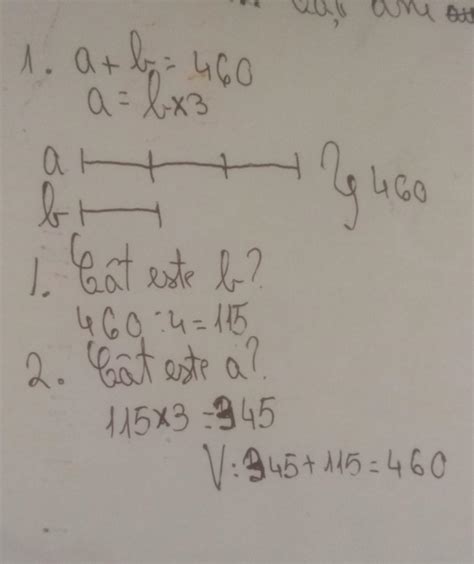 ani
1. a + b = 460
a = b×3
a
b
460
1. Cât este b?
460 : 4 = 115
2. Cât este a?
115×3 = 345
V: 345 + 115 = 460